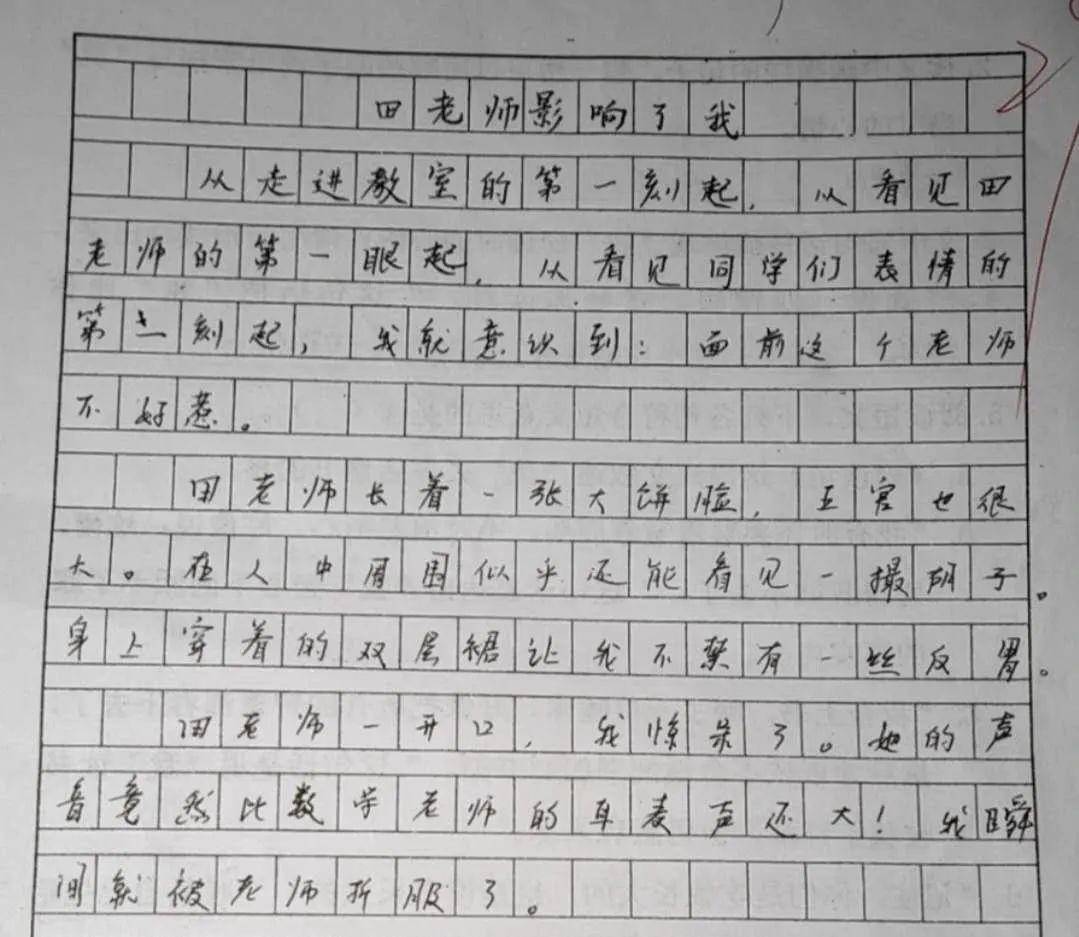 田老师影响了我
从走进教室的第一刻起，从看见田
老师的第一眼起，从看见同学们表情的
第一刻起，我就意识到：面前这个老师
不好惹。
田老师长着一张大饼脸，五官也很
大。在人中周围似乎还能看见一撮胡子。
身上穿着的双层裙让我不禁有一丝反胃。
田老师一开口，我惊呆了。她的声
音竟然比数学老师的耳麦声还大！我瞬
间就被老师折服了。